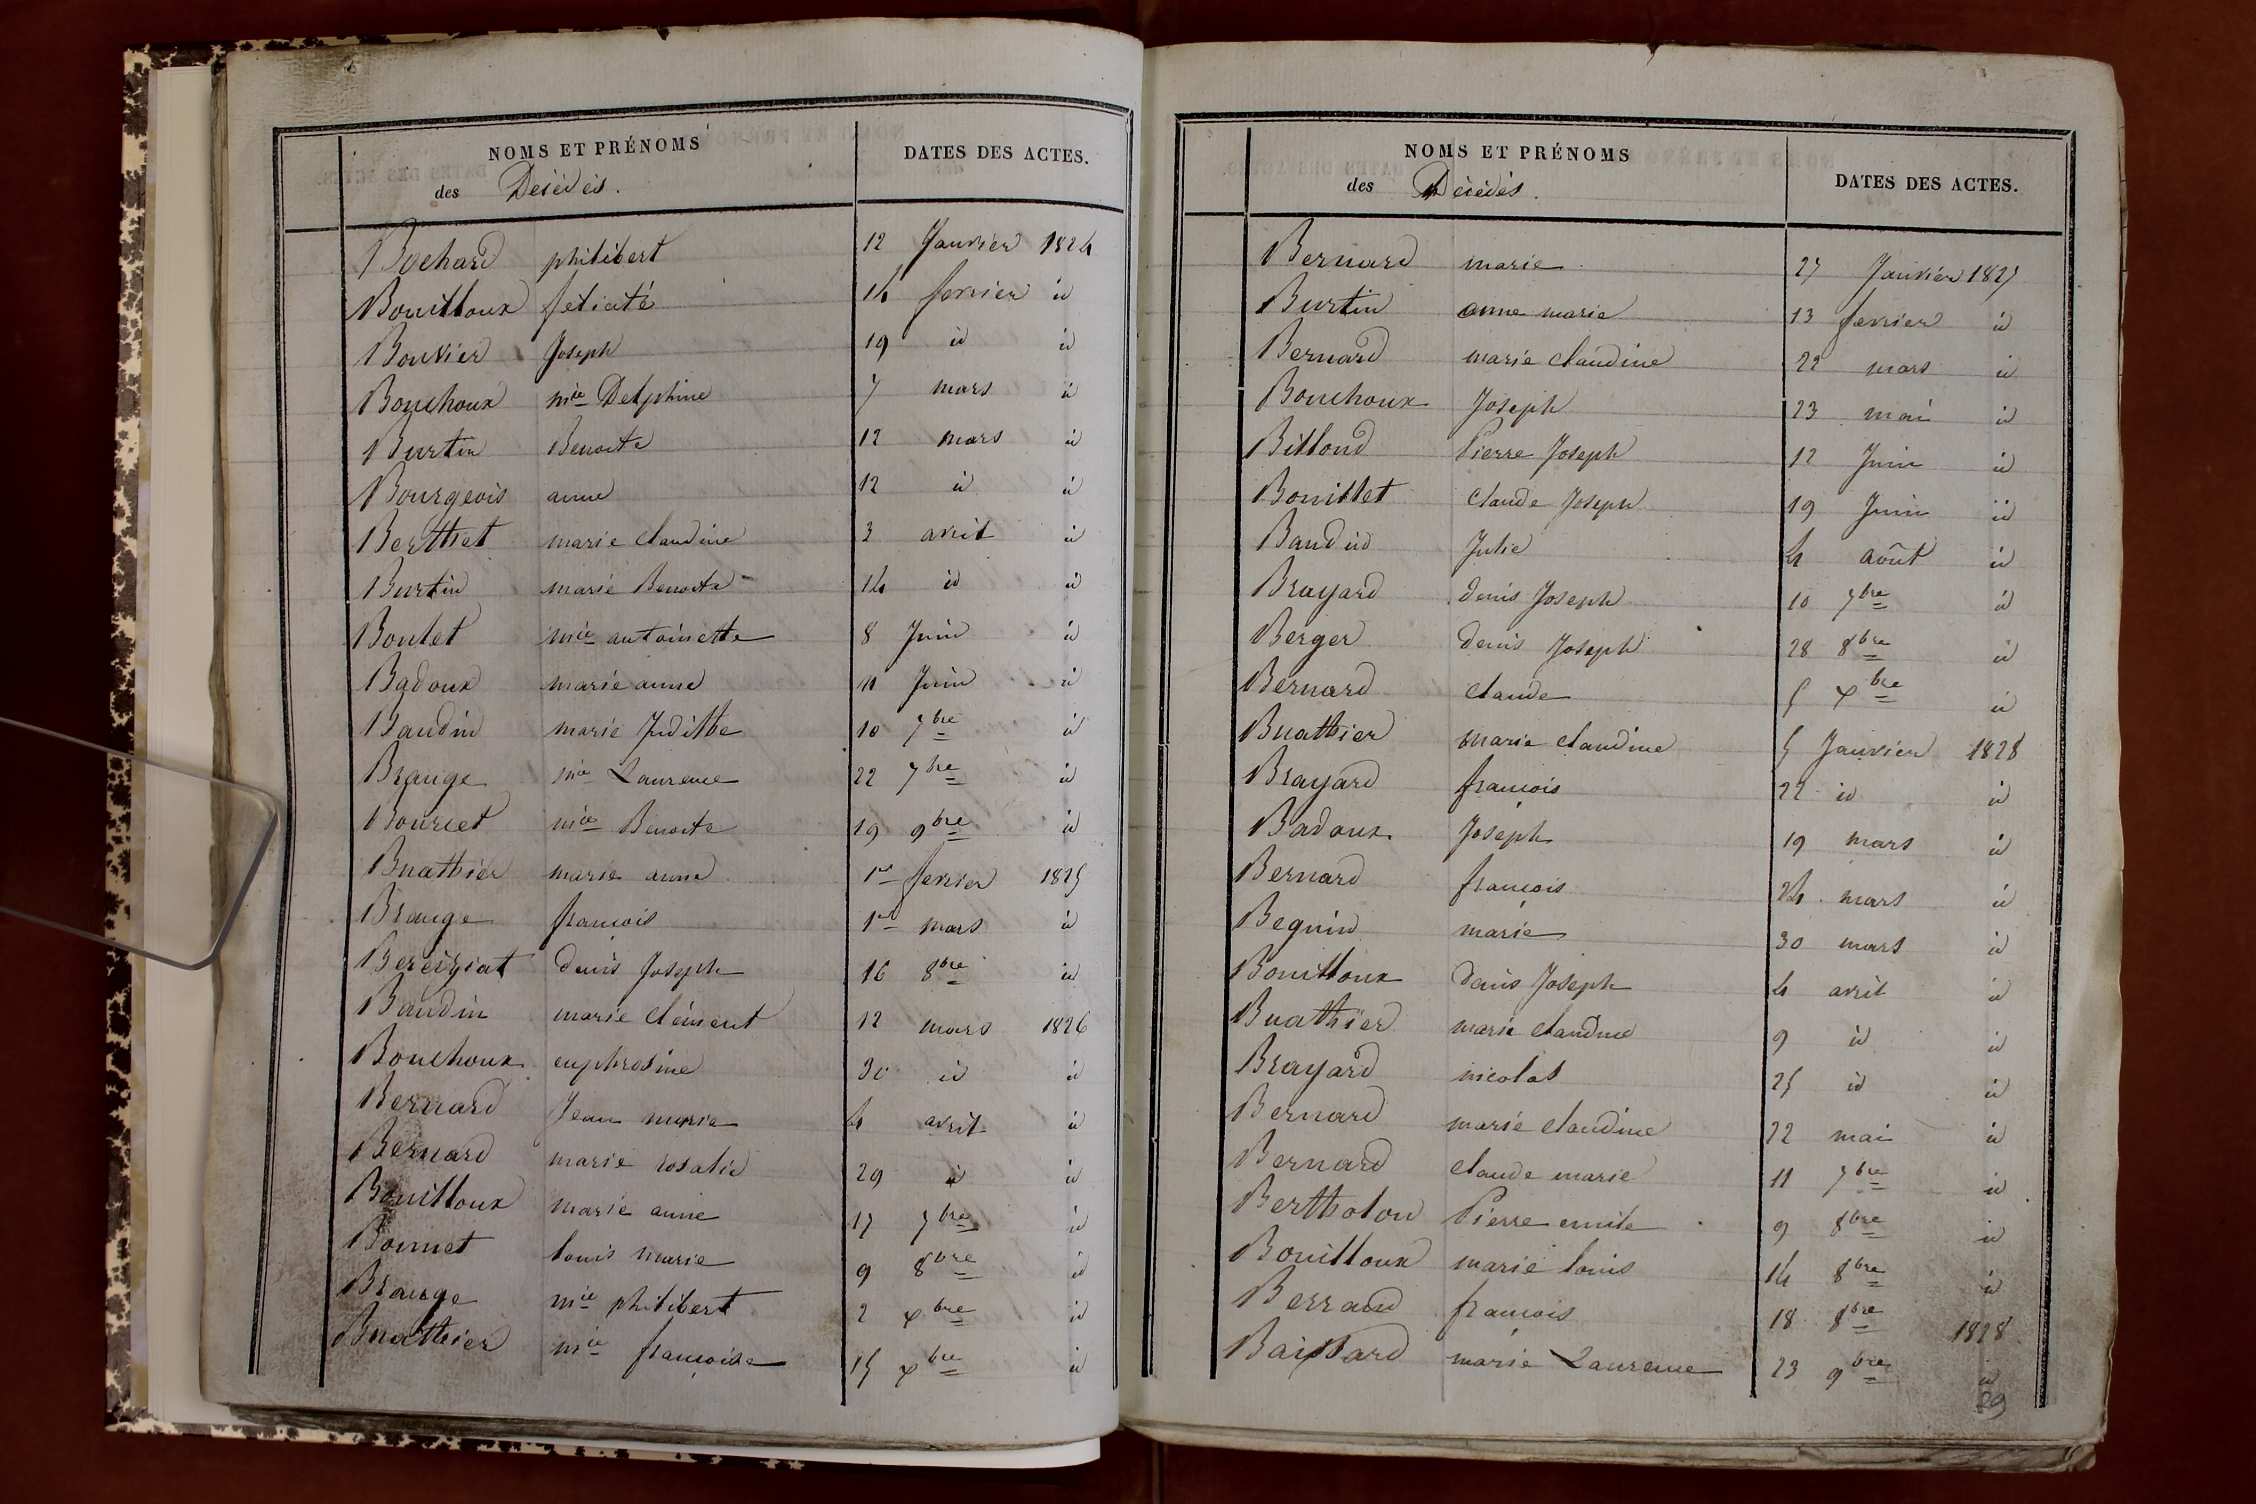 NOMS ET PRÉNOMS
des Décédés.
DATES DES ACTES.
Bochard philibert 12 Janvier 1824
Bouilloux félicité 14 fevrier id
Bouvier Joseph 19 id id
Bouchoux mie Delphine 7 mars id
Burtin Benoite 12 mars id
Bourgeois anne 12 id id
Berthet marie claudine 3 avril id
Burtin marie Benoite 14 id id
Boulet mie antoinette 8 Juin id
Badoux marie anne 11 Juin id
Baudin marie Judithe 10 7bre id
Brange mie Laurence 22 7bre id
Bourcet mie Benoite 19 9bre id
Buathier marie anne 1er fevrier 1825
Brange francois 1er mars id
Bereiziat denis Joseph 16 8bre id
Baudin marie clément 12 mars 1826
Bouchoux euphrosine 30 id id
Bernard Jean marie 4 avril id
Bernard marie rosalie 29 id id
Bouilloux marie anne 17 7bre id
Bonnet louis marie 9 8bre id
Brange mie philibert 2 xbre id
Buathier mie françoise 15 xbre id
NOMS ET PRÉNOMS
des Décédés.
DATES DES ACTES.
Bernard marie 27 Janvier 1827
Burtin anne marie 13 fevrier id
Bernard marie claudine 22 mars id
Bouchoux Joseph 23 mai id
Billoud Pierre Joseph 12 Juin id
Bouillet claude Joseph 19 Juin id
Baudin Julie 4 août id
Brayard denis Joseph 10 7bre id
Berger denis Joseph 28 8bre id
Bernard claude 5 xbre id
Buathier marie claudine 5 Janvier 1828
Brayard françois 22 id id
Badoux Joseph 19 mars id
Bernard françois 24 mars id
Beguin marie 30 mars id
Bouilloux denis Joseph 4 avril id
Buathier marie claudine 9 id id
Brayard nicolas 25 id id
Bernard marie claudine 22 mai id
Bernard claude marie 11 7bre id
Bertholon Pierre emile 9 8bre id
Bouilloux marie louis 14 8bre id
Berraud françois 18 8bre 1828
Baissard marie Laurence 23 9bre id
29